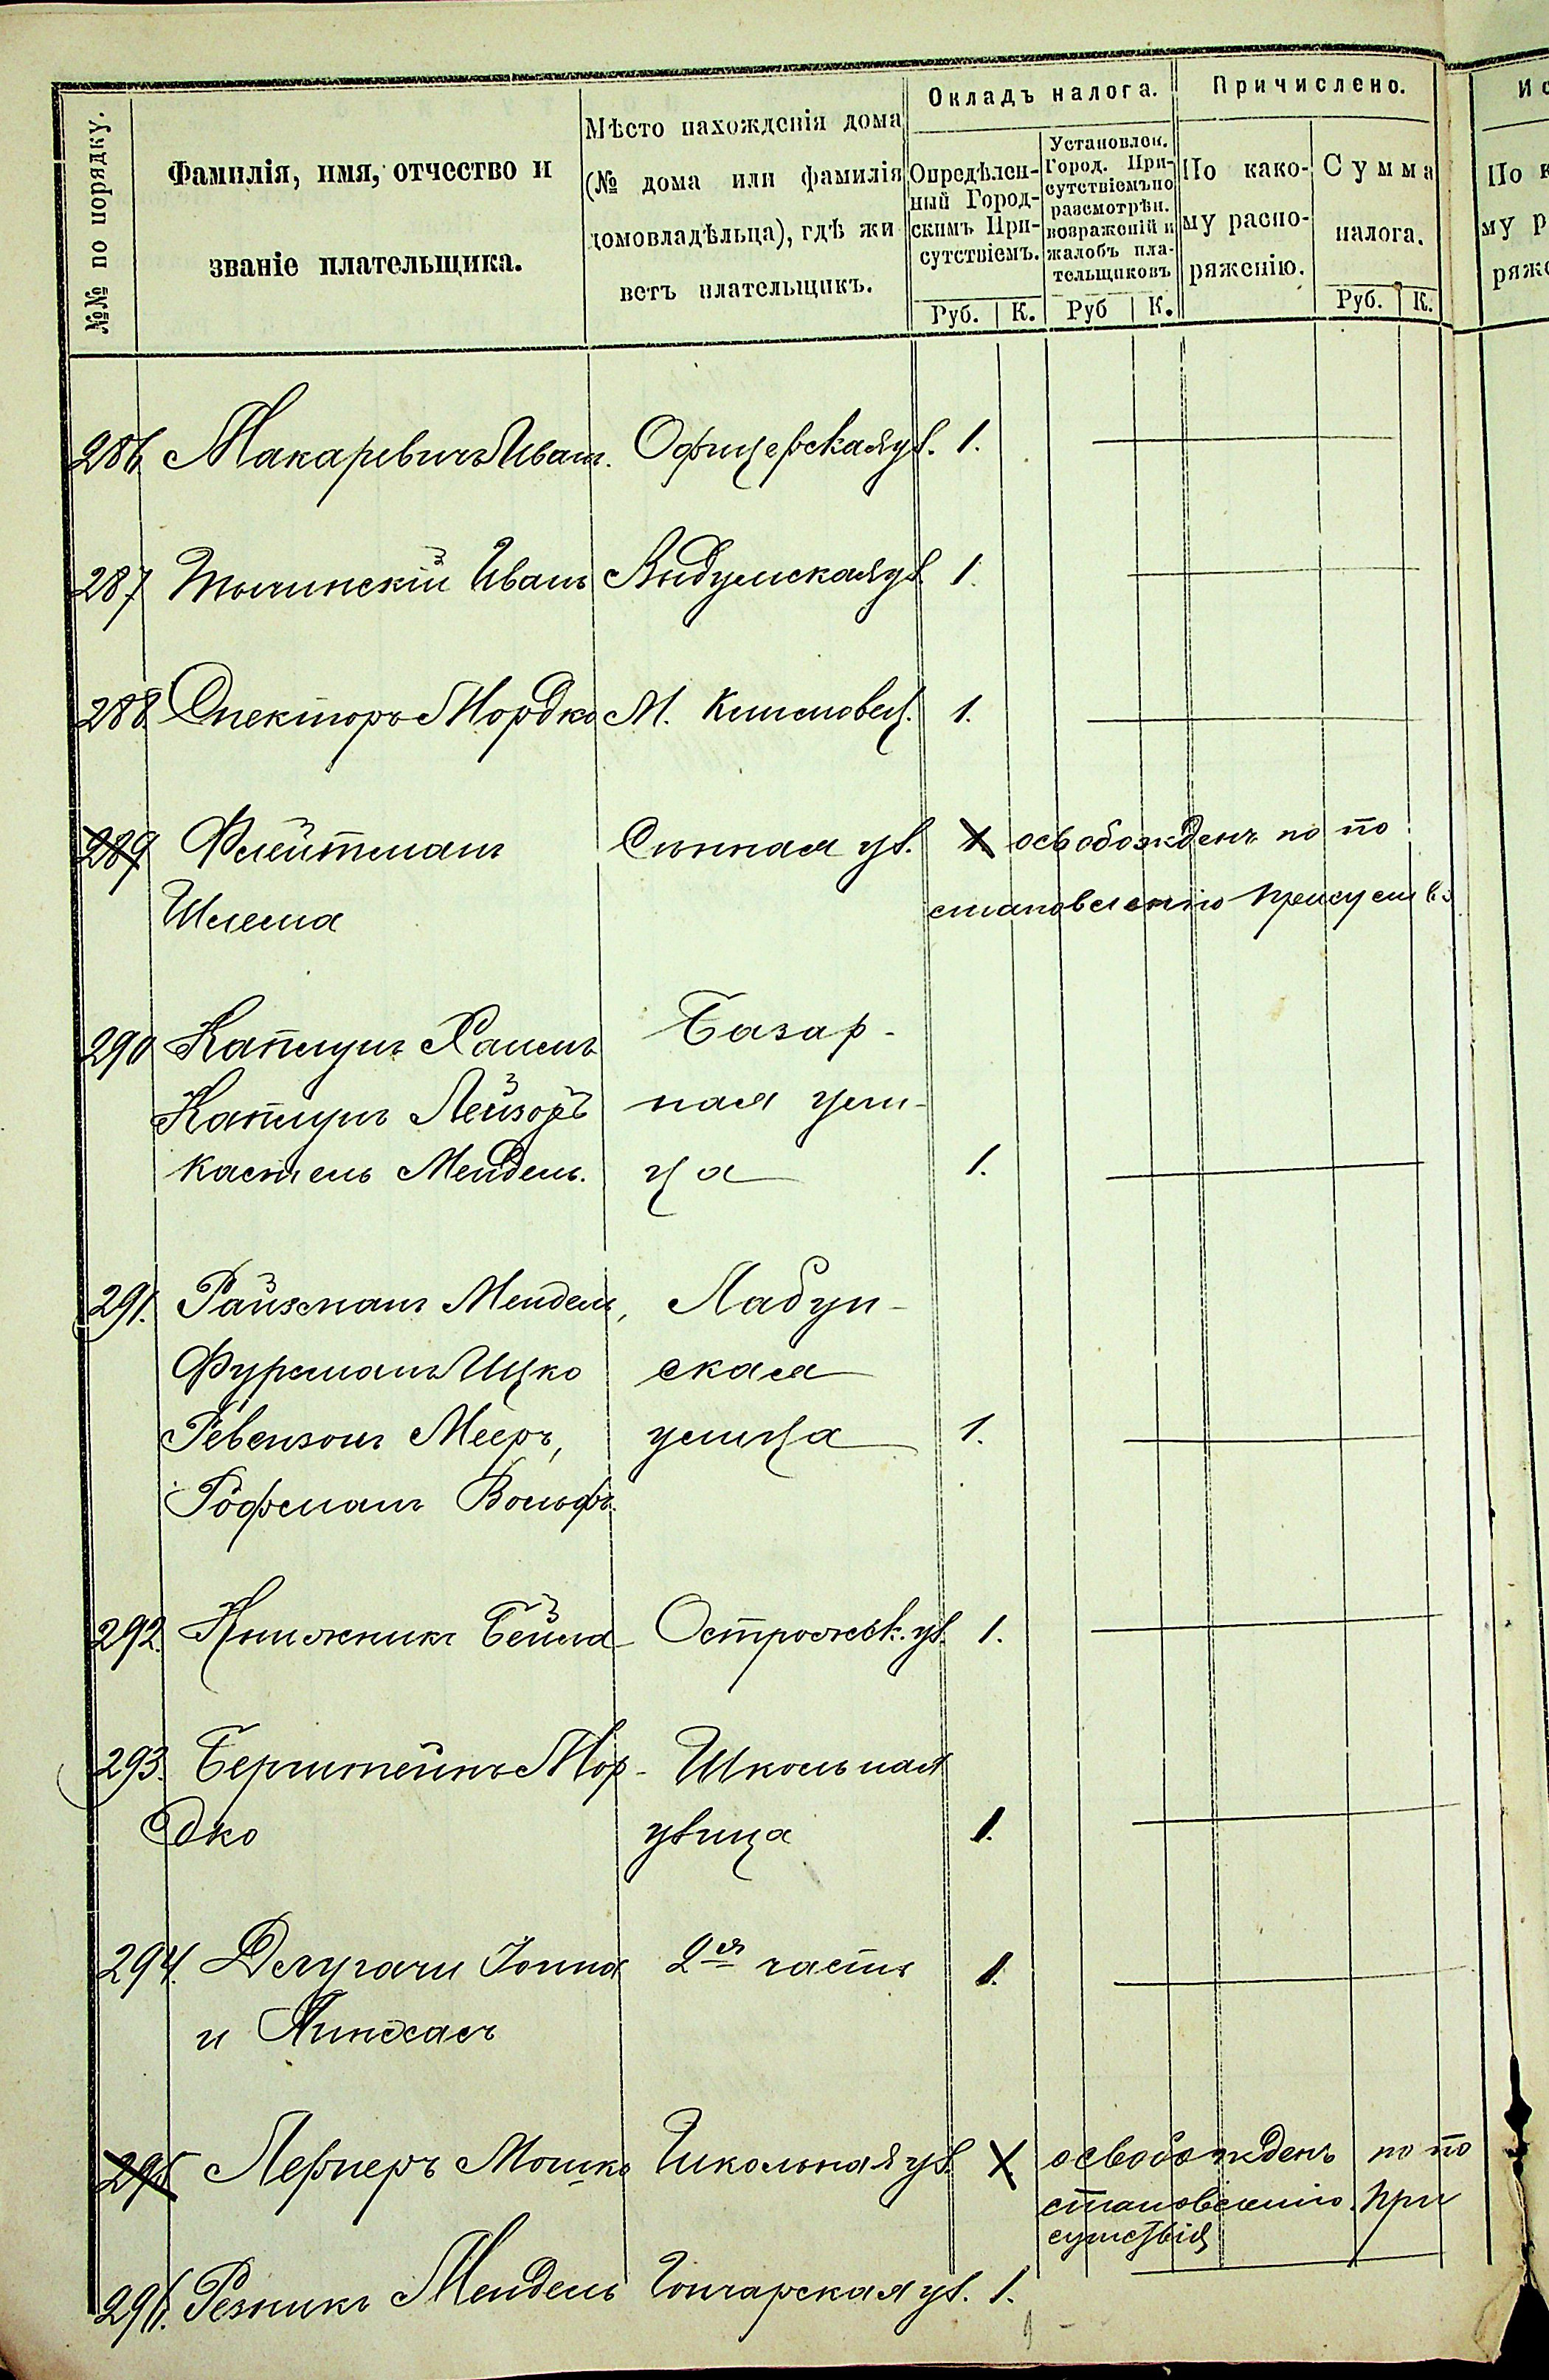 №№ по порядку.
Фамилія, имя, отчество и
званіе плательщика.
Мѣсто нахожденія дома
(№ дома или фамилія
домовладѣльца), гдѣ жи
ветъ плательщикъ.
Окладъ налога.
Опредѣлен-
ный Город-
скимъ При-
сутствіемъ.
Руб. К.
Установлен.
Город. При-
сутствіемъ по
разсмотрѣн.
возраженій и
жалобъ пла-
тельщиковъ
Руб К.
Причислено.
По како-
му распо-
ряженію.
Сумма
налога.
Руб. К.
Ис
По к
му р
ряже
286 Макаревичъ Иванъ. Офицерская ул. 1.
287 Иванъ ул. 1.
288. Спекторъ Мордко М. 1.
289 Флейтманъ Сѣнная ул. 1 освобожденъ по по
Шлема становленію Присутств
290 Каплунъ Хаимъ Базар-
Каплунъ Лейзоръ ная ули-
Кастель Мендель. ца 1.
291. Райзманъ Мендель, Лабун-
Фурманъ Ицко ская
Ревензонъ Мееръ, улица 1.
Рофманъ Вольфъ.
292. Книжникъ Бейла Острожск. ул. 1.
293. Бернштейнъ Мор- Школьная
дко улица 1.
294. Делугачи Іонна 2ая часть 1.
и Пинхасъ
295 Лернеръ Мошко Школьная ул. 1. освобожденъ по по
становленію При
сутствія
296. Резникъ Мендель Гончарская ул. 1.